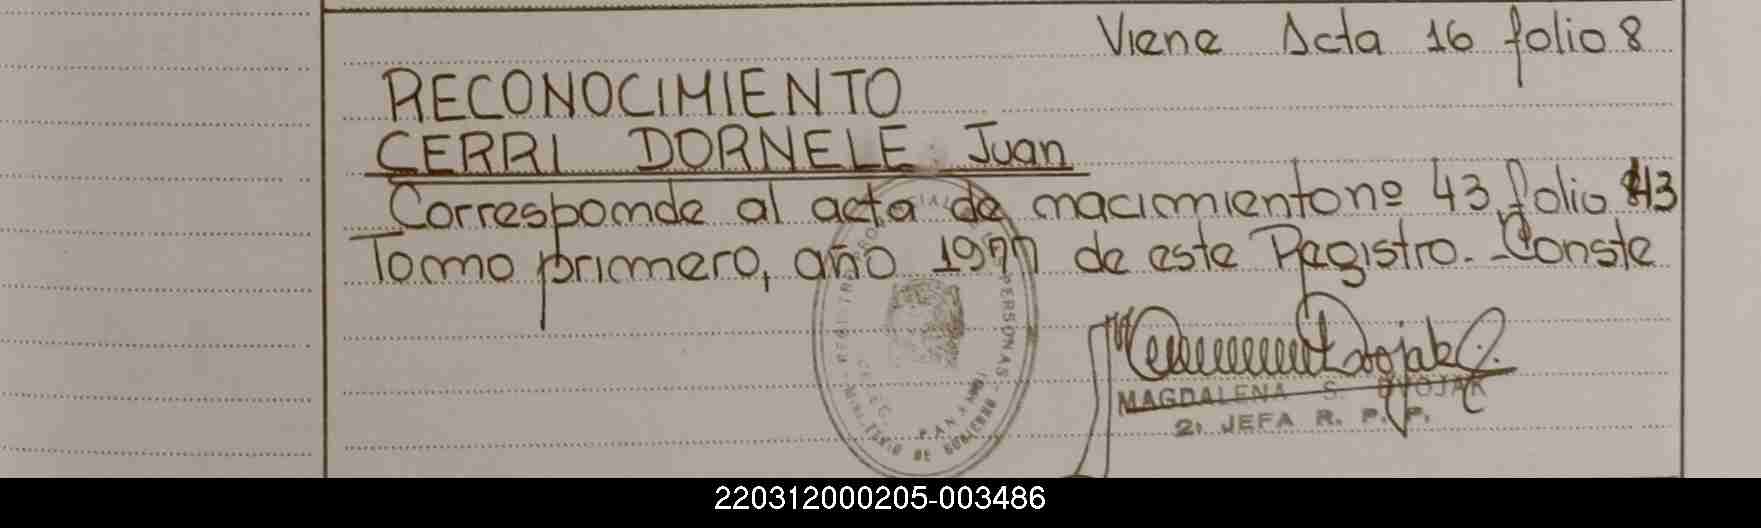 Viene Acta 16 folio 8
RECONOCIMIENTO
CERRI DORNELE Juan
Corresponde al acta de nacimiento nº 43 folio 43
Tomo primero, año 1977 de este Registro. - Conste
MAGDALENA S. DVOJAK
2. JEFA R. P. P.
PERSONAS
MINISTERIO DE GOBIERNO
220312000205-003486